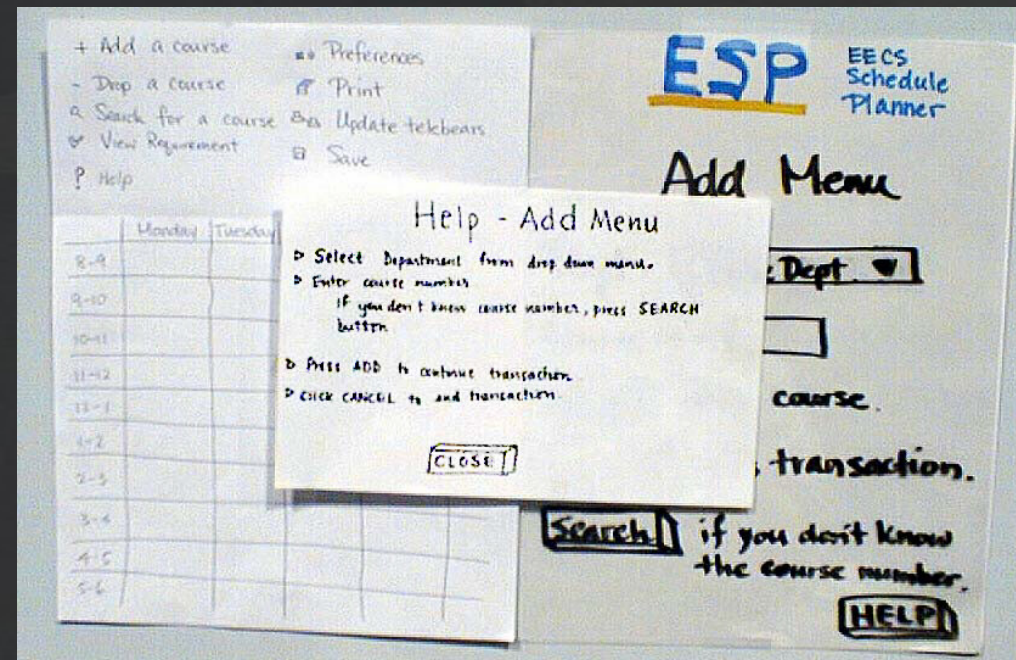 + Add a course
- Drop a course
Search for a course
View Requirement
? Help
Preferences
Print
Update telebears
Save
Monday Tuesday
8-9
9-10
10-11
11-12
12-1
1-2
2-3
3-4
4-5
5-6
Help - Add Menu
Select Department from drop down menu.
Enter course number
if you don't know course number, press SEARCH
button.
Press ADD to continue transaction.
Click CANCEL to end transaction.
CLOSE
ESP
EECS
Schedule
Planner
Add Menu
Dept.
course.
transaction.
Search if you don't know
the course number.
HELP